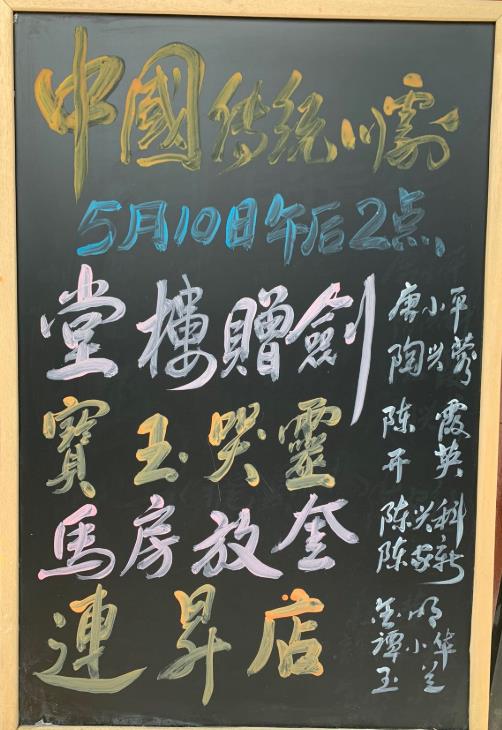 中國传统川劇
5月10日午后2点
堂樓贈劍
唐小平
陶兴蓉
寶玉哭靈
陈霞
开英
馬房放奎
陈兴科
陈家新
連昇店
金明
谭小华
玉兰